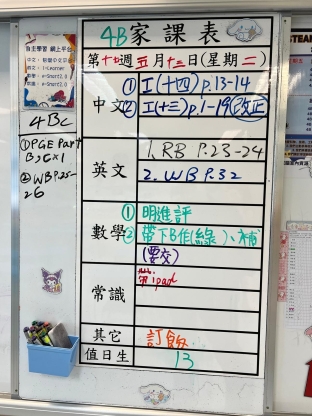 4B家課表
第十七週 五月十三日(星期二)
中文
① 工(十四)p.13-14
② 工(十三)p.1-19 改正
英文
1. RB P.23-24
2. WB P.32
數學
① 明進評
② 帶下B作(綠)、補
(要交)
常識
帶ipad
其它
訂飯
值日生
13
自主學習 網上平台
4BC
① PGE Part
B, C×1
② WB P.25-
26